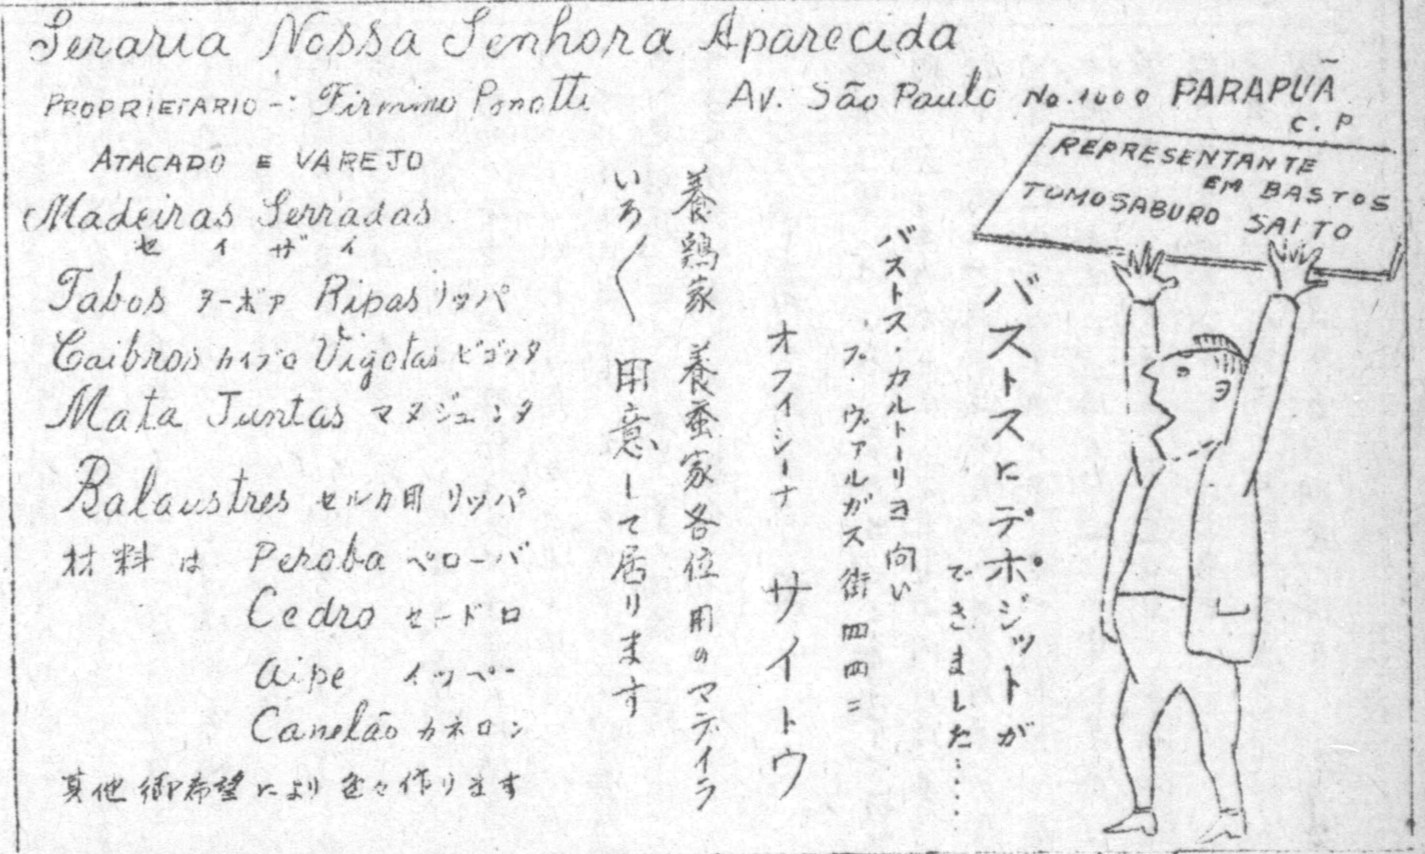 Seraria Nossa Senhora Aparecida
PROPRIETARIO -: Firmino Ponotti
Av. São Paulo No. 1000 PARAPUÃ
C. P
ATACADO E VAREJO
Madeiras Serradas
セイザイ
Tabos ターボア Ripas リッパ
Caibros カイブロ Vigotas ビゴッタ
Mata Juntas マタジュンタ
Balaustres セルカ用 リッパ
材料は Peroba ペローバ
Cedro セードロ
Aipe イッペー
Canelão カネロン
其他御希望により色々作ります
REPRESENTANTE
EM BASTOS
TOMOSABURO SAITO
バストスにデポジットが
できました‥‥
バストス・カルトーリヨ向い
プ・ヴァルガス街四四二
オフイシーナ サイトウ
養鶏家 養蚕家各位用のマデイラ
いろ〱 用意して居ります